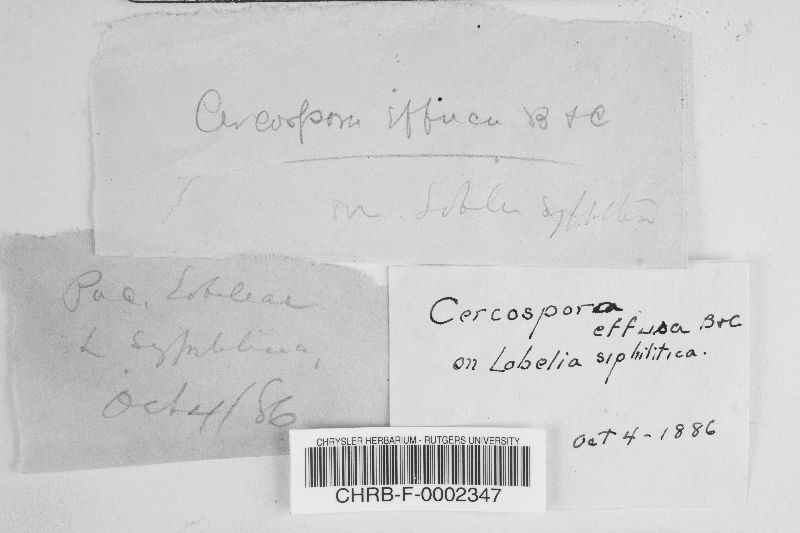 Cercospora effusa B & C
on Lobelia syphilitica
Puc. Lobeliae
L syphilitica,
Oct 4/86
Cercospora
effusa B&C
on Lobelia siphilitica.
Oct 4-1886
CHRYSLER HERBARIUM - RUTGERS UNIVERSITY
CHRB-F-0002347